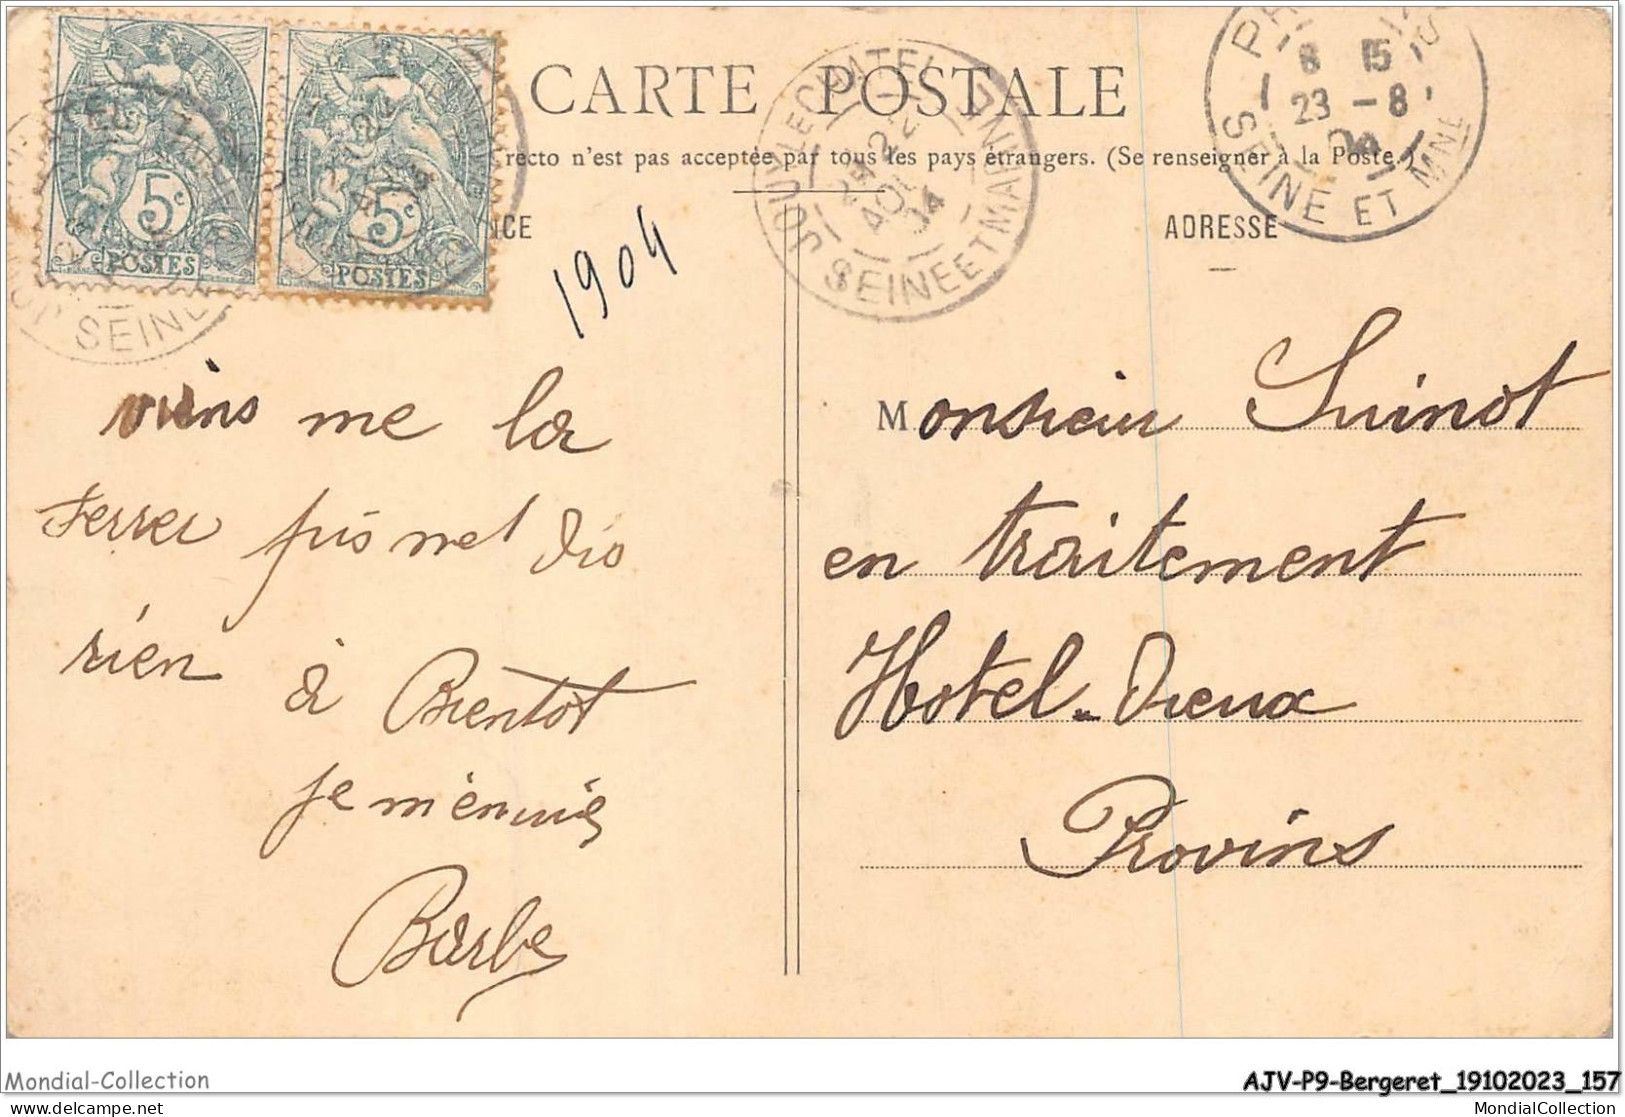 CARTE POSTALE
recto n'est pas acceptée par tous les pays étrangers. (Se renseigner à la Poste.)
NCE
ADRESSE
5c
POSTES
5c
POSTES
SEINE
JOUY LE CHATEL
22
AOUT
04
SEINE ET MARNE
8 15
23 - 8
04
SEINE ET MNE
1904
viens me la
serrer puis met dis
rien
à Bientot
je m'ennuis
Barbe
Monsieur Suinot
en traitement
Hotel-Dieux
Provins
Mondial-Collection
AJV-P9-Bergeret_19102023_157
delcampe.net
MondialCollection